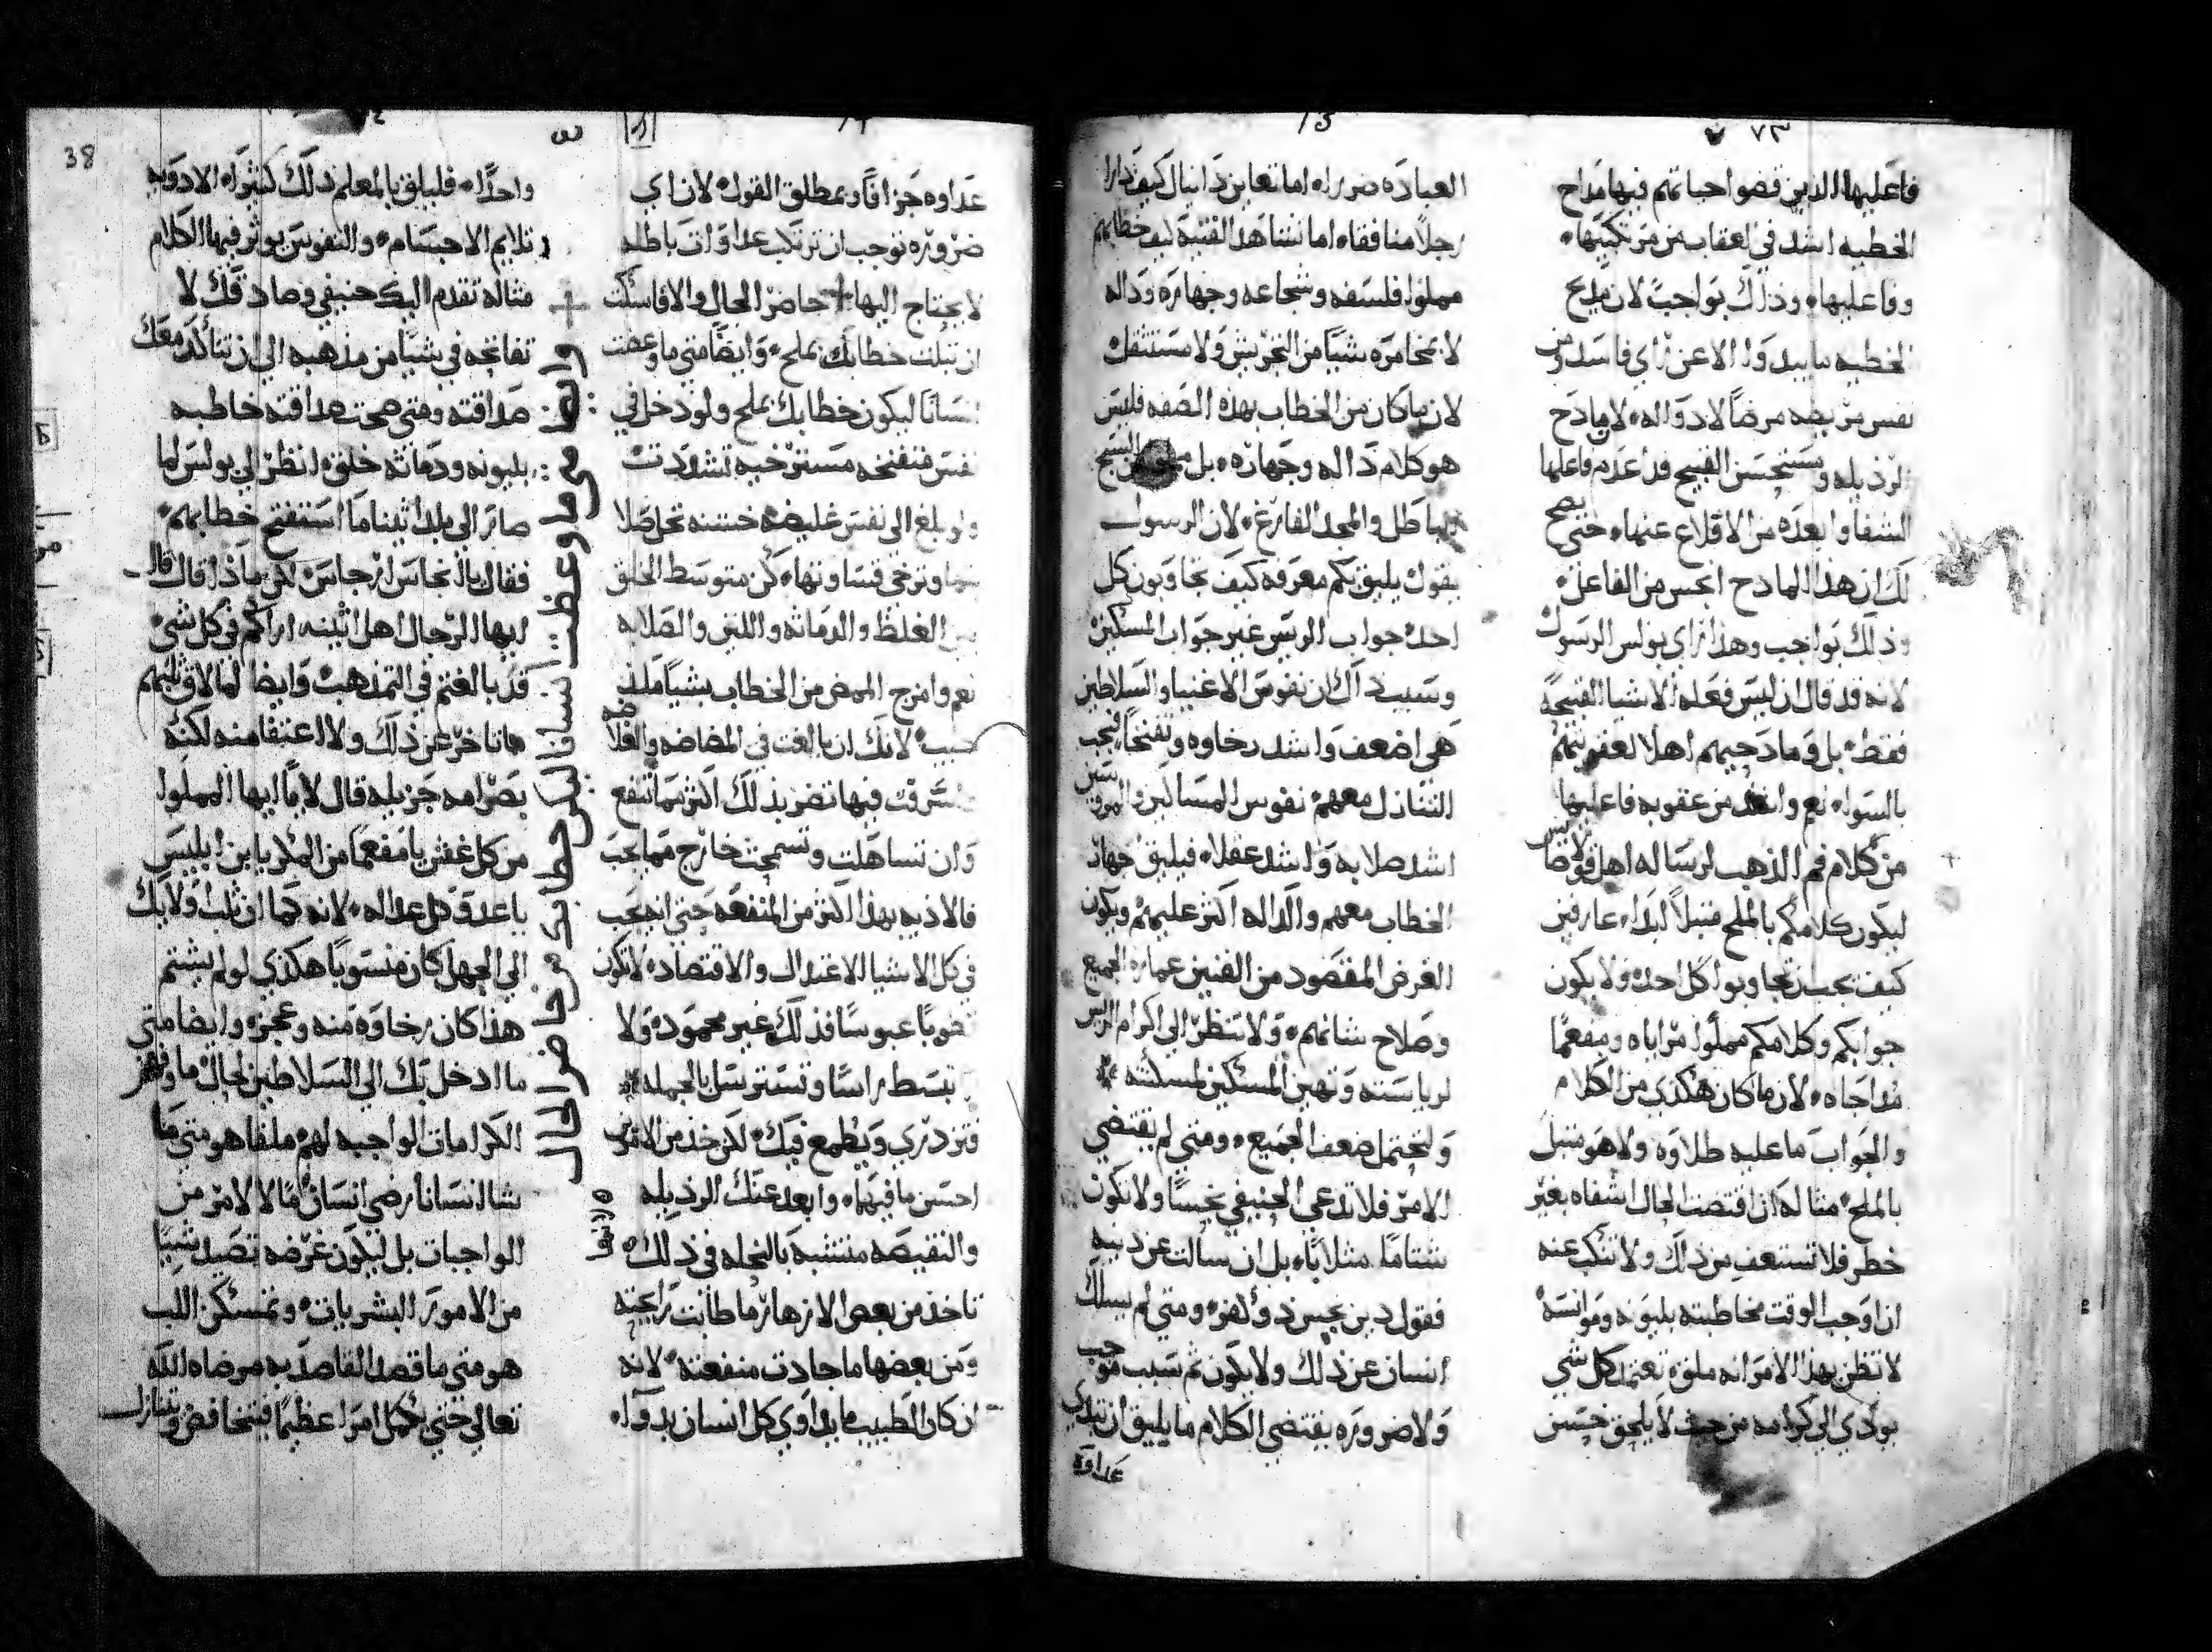 ٧٣
فاعليها الذين قضوا حياتهم فيها مداح
الخطيه اشد في العقاب من مرتكبيها
وفاعليها وذلك بواجب لان مديح
الخطيه ما يبدوا الا عن راي فاسد ومن
نفس مريضه مرضًا لا دوا له لا مادح
الرذيله ومستحسن القبيح قد عدم فاعلها
الشفا وابعده من الاقلاع عنها حتى يصح
لك ان هذا المادح انجس من الفاعل
وذلك بواجب وهذا راي بولس الرسول
لانه قد قال ان ليس فعله الاشيا القبيحه
فقط بل ومادحيهم اهلا لعقوبتهم
بالسوا نعم وابعد من عقوبة فاعليها
من كلام فم الذهب لرسالة اهل قولاصايس
ليكون كلامكم بالملح متبلاً ابدا عارفين
كيف يجب ان تجاوبوا كل احد ولا يكون
جوابكم وكلامكم مملوا مراياه ومفعمًا
مداجاه لان ما كان هكذي من الكلام
والجواب ما عليه طلاوه ولا هو متبل
بالملح مثاله ان اقتضت الحال اشفاه بغير
خطر فلا تستعف من ذلك ولا تنكب عنه
ان اوجب الوقت مخاطبته بليونه وموانسه
لا تظن بهذا الامر انه ملق تعتمد كل شي
يودي الي كرامه من حيث لا يلحق حسن
العباده ضررا اما تعاين دانيال كيف دارا
رجلاً منافقا اما تشاهد الفتيه كيف خطابهم
مملوا فلسفه وشجاعه وجهاره ودالة
لا يخامره شيًا من التحريش ولا مستثقل
لان ما كان من الخطاب بهذه الصفه فليس
هو كلام دالة وجهاره بل من السبح
الباطل والمجد الفارغ لان الرسول
يقول يليق بكم معرفة كيف تجاوبون كل
احد جواب الريس غير جواب المسكين
وسبب ذلك ان نفوس الاغنيا والسلاطين
هي اضعف واشد رخاوه وتفتحًا فيجب
التنازل معهم نفوس المساكين والمروسين
اشد صلابه واشد عقلا فيليق جهاد
الخطاب معهم والداله اكثر عليهم ويكون
الغرض المقصود من الفنين عمارة الجميع
وصلاح شانهم ولا تنظر الي اكرام الريس
لرياسته وتهين المسكين لمسكنته
ولتحتمل ضعف الجميع ومتي لم يقتضي
الامر فلا تدعي الحنيفي نجسًا ولا تكون
شتامًا مثلابًا بل ان سالت عن دينه
فقول دين نجس ذو كفر ومتي لم يسلك
انسان عن ذلك ولا يكون ثم سبب موجب
ولا ضروره يقتضي الكلام ما يليق ان تبتدي
عداوة
عداوه جزافًا وبمطلق القول لان اي
ضروره توجب ان ترتكب عداوات باطله
لا يحتاج اليها حاضر الحال والا فاسكت
ان تبلت خطابك بملح وايضًا متي ما وعضت
انسانًا ليكون خطابك بملح ولو دخل في
نفس منفتحه مسترخيه تشددت
ولو بلغ الى نفس غليضه خشنه تحل صلا
بتها وترخي قساوتها كن متوسط الخلق
بين الغلظ والدماثه واللين والصلابه
نعم وامزج الممض من الخطاب بشيًا ملذ
لانك ان بالغت في المضاضه والغلاضه
واشرفت فيها تضر بذلك اكثر مما تنفع
وان تساهلت وتسمجت خارج مما يجب
فالاذيه بهذا اكثر من المنفعه حتي انه يجب
في كل الاشيا الاعتدال والاقتصاد لا تكون
عبوسًا فذلك غير محموده ولا
تبسط راسًا وتسترسل بالجمله
فتزدري ويطمع فيك لكن خذ من الامرين
احسن ما فيهما وابعد عنك الرذيله
والنقيصه متشبه بالنحله في ذلك
تاخذ من بعض الازهار ما طابت رايحته
ومن بعضها ما جادت منفعته لانه
ان كان الطبيب ما يداوي كل انسان بدوا
وان متى ما وعظت انسانا ليكن خطابك من حاضر الحال
38
واحدًا فليليق بالمعلم ذلك كثيرا الادويه
تلايم الاجسام والنفوس يوثر فيها الكلام
مثاله تقدم اليك حنيفي وصادقك لا
تفاتحه في شيًا من مذهبه الي ان تتاكد معك
صداقته ومتي صحت صداقته خاطبه
بليونه ودماثة خلق انظر الي بولس لما
صار الي بلد اثينا ما استفتح خطابهم
فقال يا انجاس ارجاس لكن ماذا قال قال
ايها الرجال اهل اثينه اراكم في كل شي
قد بالغتم في التمذهب وايضا لما لاق ثلبهم
ما تاخر عن ذلك ولا اعتفا منه لكنه
بصرامه جزيله قال لاما ايها المملوا
من كل غش يا مفعمًا من المكر يا بن ابليس
يا عدو كل عداله لانه كما ان ثلب اولايك
الي الجهل كان منسوبًا هكذي لو لم يشتم
هذا كان رخاوه منه وعجز وايضا متي
ما ادخل بك الي السلاطين لحال ما وفر
الكرامات الواجبه لهم ملقا هو متي ما
شا انسانا رضي انسان ما لا لامر من
الواجبات بل ليكون غرضه تصيد شيًا
من الامور البشريات وتمسكن اللب
هو متي ما قصد القاصد به مرضاه الله
تعالي حتي يحكم امرا عظيمًا فيتخافض ويتنازل